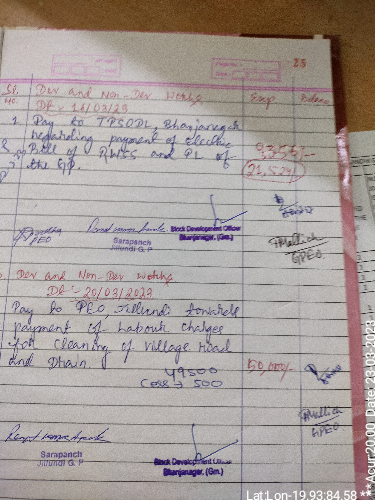 25
Sl. Dev and Non-Dev Works Exp
No. Dt - 16/03/23
1 Pay to TPSODL, Bhanjanagar
regarding payment of electric 9355/-
Bill of RWSS and PL of 21,524/
the GP.
PEO
Block Development Officer
Bhanjanagar, (Gm.)
Sarapanch
Jillundi G. P
GPEO
Dev and Non-Dev works
Dt - 20/03/2023
Pay to PEO, Jillundi towards
payment of Labour charges
for cleaning of village Road 50,000/-
and Drain.
49500
Cess → 500
GPEO
Sarapanch
Jillundi G. P
Block Development Officer
Bhanjanagar, (Gm.)
Lat:Lon-19.93:84.58 **Acur:20.00 Date:23-03-2023